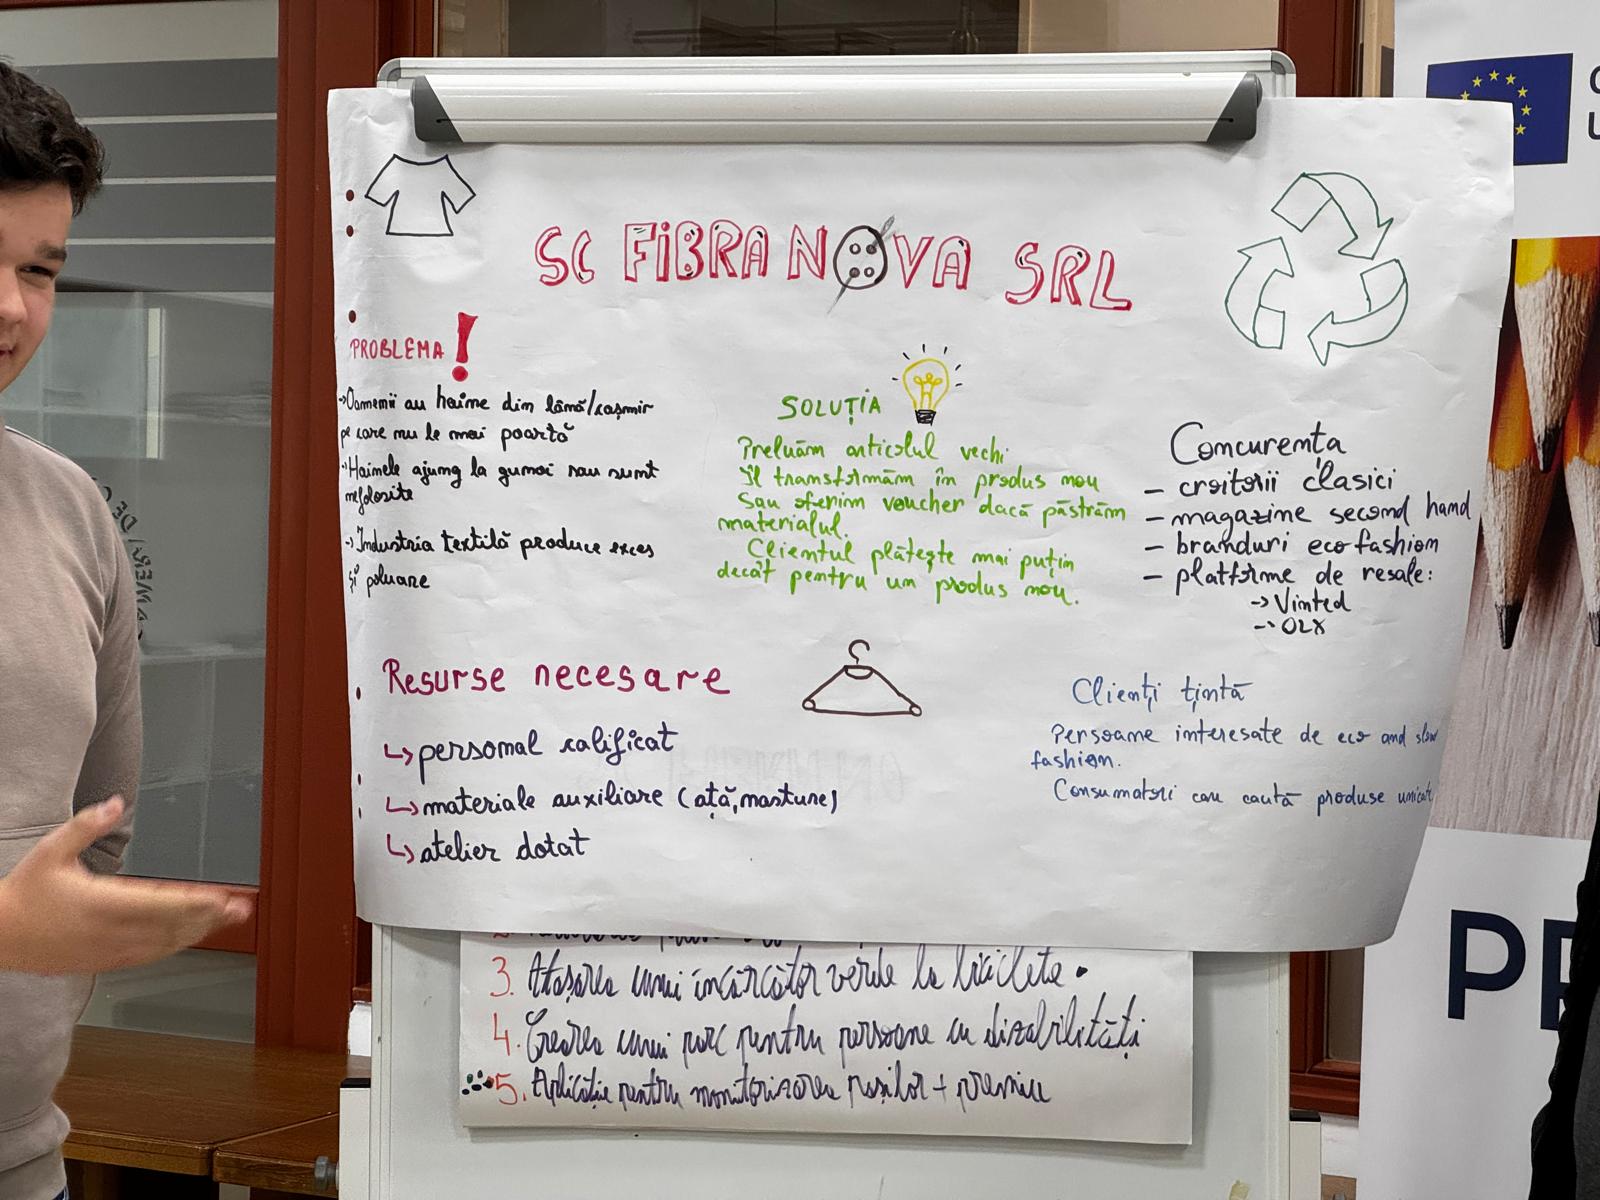 SC FIBRA NOVA SRL
PROBLEMA!
→Oamenii au haine din lână/cașmir
pe care nu le mai poartă
→Hainele ajung la gunoi sau sunt
nefolosite
→Industria textilă produce exces
și poluare
SOLUȚIA
Preluăm articolul vechi
Îl transformăm în produs nou
Sau oferim voucher dacă păstrăm
materialul.
Clientul plătește mai puțin
decât pentru un produs nou.
Concurența
- croitorii clasici
- magazine second hand
- branduri eco fashion
- platforme de resale:
→ Vinted
→ OLX
Resurse necesare
↳ personal calificat
↳ materiale auxiliare (ață, nasture)
↳ atelier dotat
Clienți țintă
Persoane interesate de eco and slow
fashion.
Consumatori cau caută produse unicat
3. Atașarea unui încărcător verde la biciclete
4. Crearea unui parc pentru persoane cu dizabilități
5. Aplicație pentru monitorizarea pașilor + premiu
PE